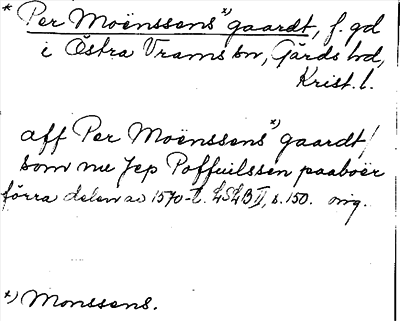 * Per Moënssens *) gaardt, f. gd
i Östra Vrams sn, Gärds hd,
Krist. l.
aff Per Moënssens *) gaardt /
som nu Jep Poffuilssen paaboër
förra delen av 1570-t. LSLB II, s. 150. orig.
*) Monssens.